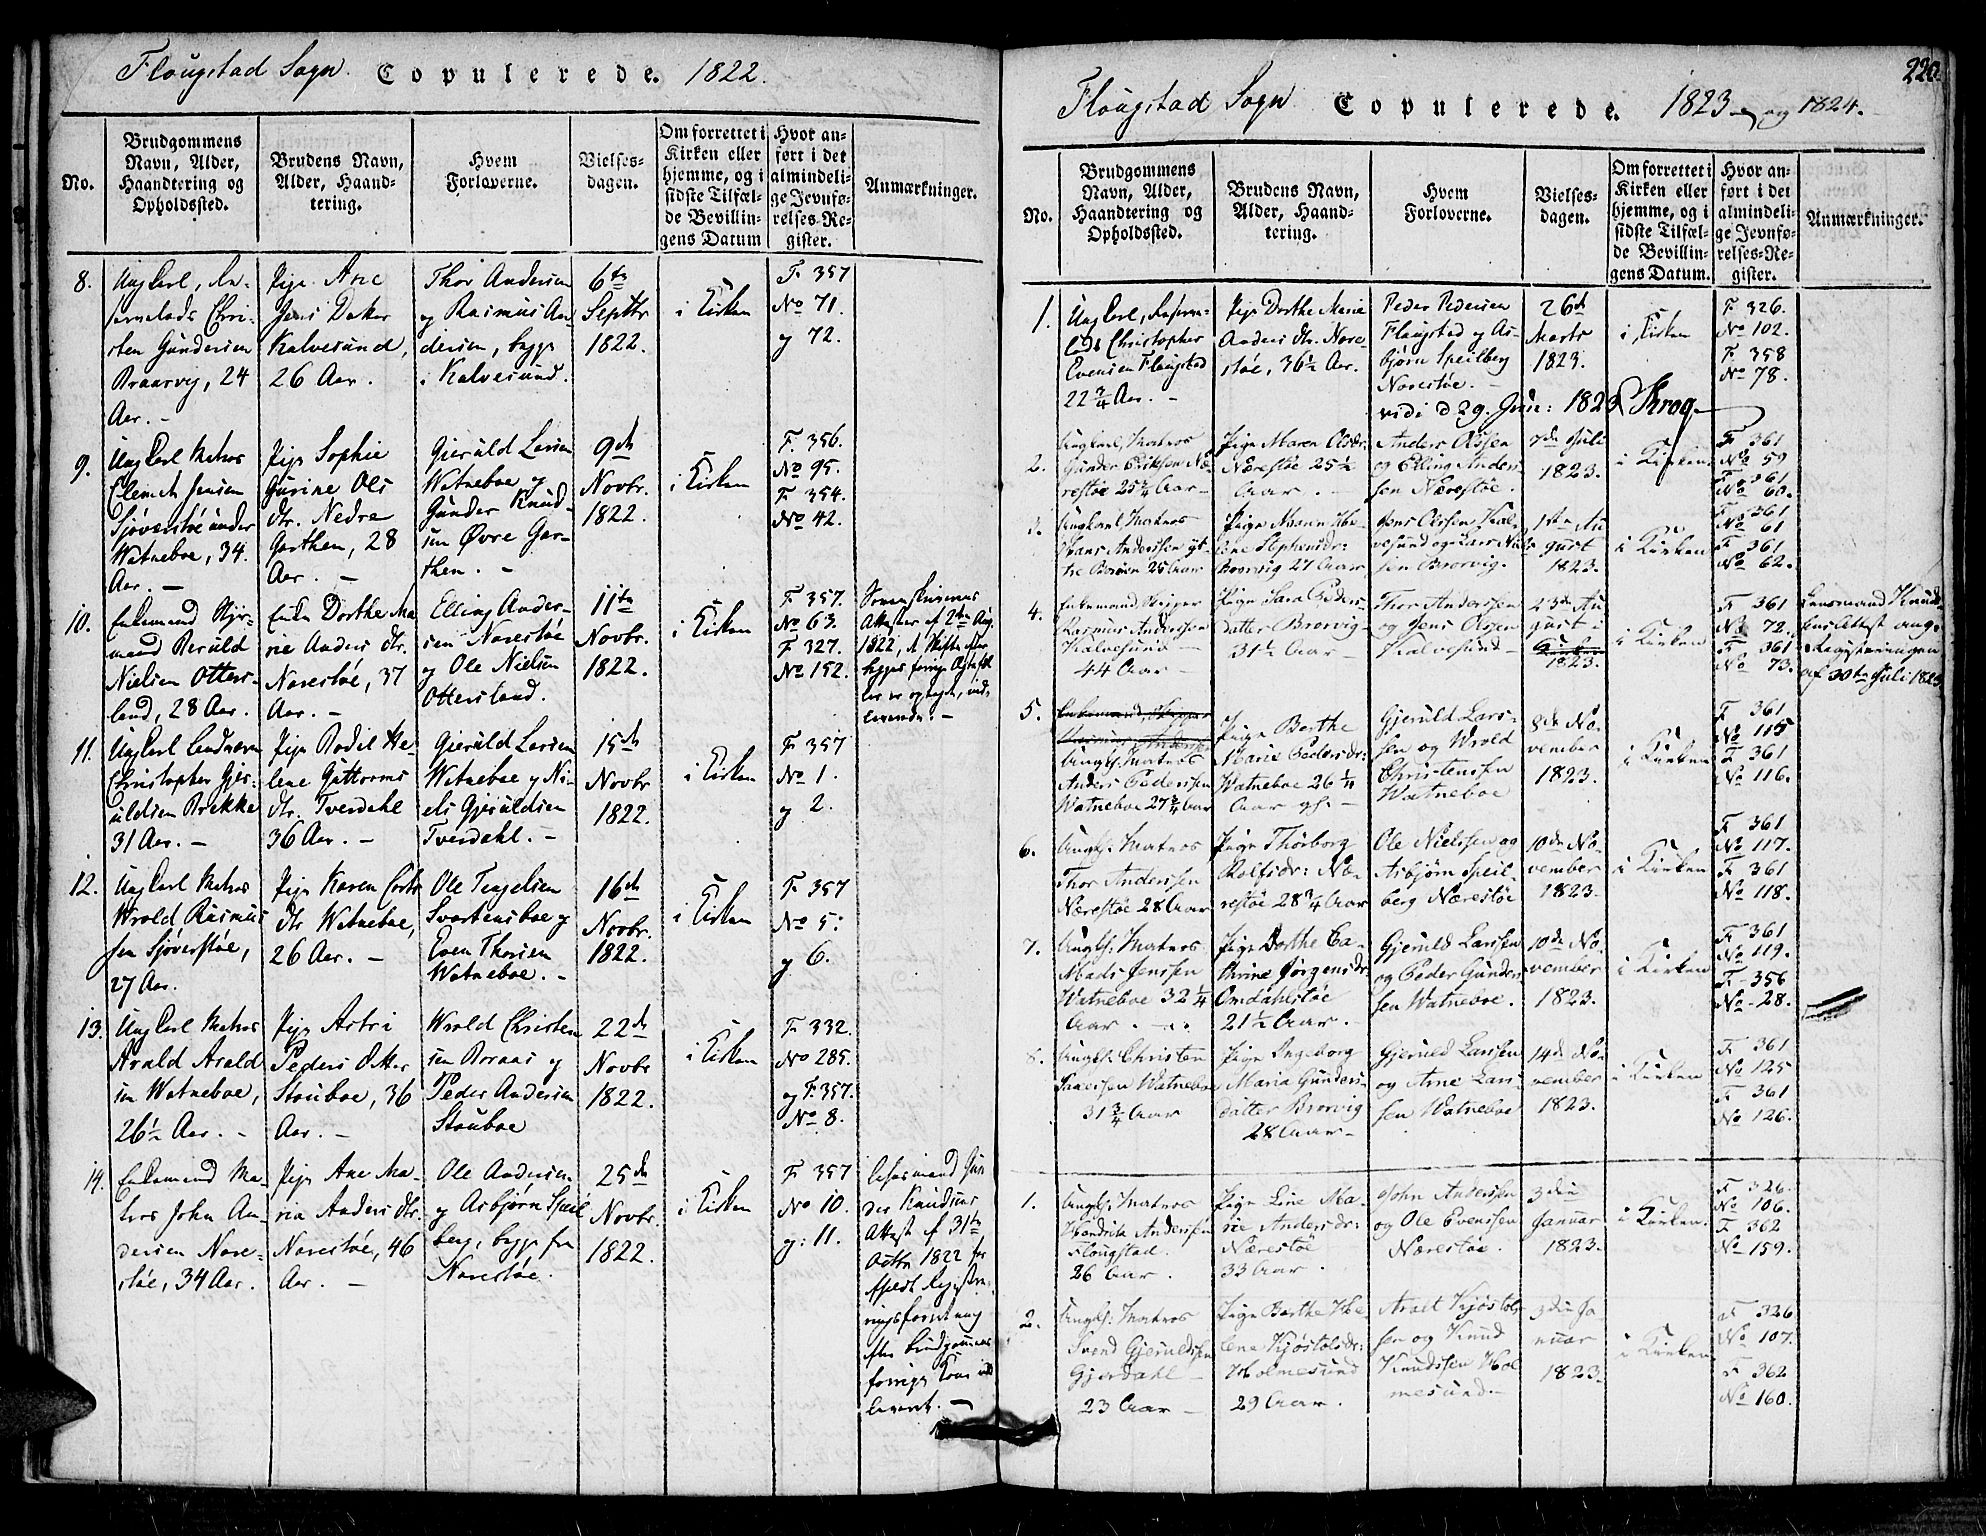 Flougstad Sogn. Copulerede. 1822.
No.
Brudgommens
Navn, Alder,
Haandtering og
Opholdssted.
Brudens Navn,
Alder, Haand-
tering.
Hvem
Forloverne.
Vielses-
dagen.
Om forrettet i
Kirken eller
hjemme, og i
sidste Tilfæl-
de Bevillin-
gens Datum
Hvor an-
ført i det
almindeli-
ge Jevnfø-
relses-Re-
gister.
Anmærkninger.
8.
Ung Carl,
Chri-
sten Gundersen
Braarvig, 24
Aar. -
Pige Ane
Jens Datter
Kalvesund,
26 Aar.
Thor Andersen
og Rasmus An-
dersen, begge
i Kalvesund.
6te
Septbr
1822.
i Kirken
F. 357
No 71.
og 72.
9.
Ung Carl Matros
Clemet Jensen
Sjøverstøe under
Watneboe, 34.
Aar. -
Pige Sophie
Gurine Ols
dtr. Nedre
Garthen, 28
Aar. -
Gieruld Larsen
Watneboe og
Gunder Knud-
sen Øvre Gar-
then. -
9de
Novbr.
1822.
i Kirken
F. 356.
No 95.
F. 354.
No 42.
10.
Enkemand Styr-
mand Beruld
Nielsen Otters-
land, 28 Aar.
Enke Dorthe Ma-
rie Anders dtr.
Narestøe, 37
Aar. -
Elling Ander-
sen Narestøe
og Ole Nielsen
Ottersland.
11te
Novbr.
1822.
i Kirken
F. 357.
No 63.
F. 327.
No 152.
Attester af 2den Aug.
1822, at Skifte efter
begges forrige Ægtefæl-
ler er optaget, ind-
leverede. -
11.
Ung Carl Landværn
Christopher Gjer-
uldsen Brekke
31 Aar. -
Pige Bodil He-
lene Guttorms
dtr. Tverdahl
36 Aar. -
Gieruld Larsen
Watneboe og Ni-
els Gjeruldsen
Tverdahl. -
15de
Novbr
1822.
i Kirken
F. 357
No 1.
og 2.
12.
Ung Carl Matros
Wrold Rasmus
sen Sjøverstøe,
27 Aar.
Pige Karen Lars
dtr. Watneboe,
26 Aar. -
Ole Tergelsen
Svartensboe og
Even Thorsen
Watneboe. -
16de
Novbr.
1822.
i Kirken
F. 357
No 5.
og 6.
13.
Ung Carl Matros
Arald Arald
sen Watneboe,
26½ Aar. -
Pige Astri
Peders Dtter
Stouboe, 36
Aar. -
Wrold Christen
sen Boraas og
Peder Andersen
Stouboe
22de
Novbr
1822.
i Kirken
F. 332.
No 285.
og F. 357.
No 8.
14.
Enkemand Ma-
tros John An-
dersen Nare-
støe, 34 Aar.
Pige Ane Ma-
ria Anders dtr.
Narestøe, 46
Aar. -
Ole Andersen
og Asbjørn Speil
berg, begge fra
Narestøe.
25de
Novbr.
1822.
i Kirken
F. 357
No 10.
og: 11.
Lensmand Gun
der Knudsens
Attest af 31te
Octbr 1822 for
afholdt Registre-
ringsforretning
efter Brudgommens
forrige Kone ind
leveret. -
220.
Flougstad Sogn. Copulerede. 1823 og 1824.
No.
Brudgommens
Navn, Alder,
Haandtering og
Opholdssted.
Brudens Navn,
Alder, Haand-
tering.
Hvem
Forloverne.
Vielses-
dagen.
Om forrettet i
Kirken eller
hjemme, og i
sidste Tilfæl-
de Bevillin-
gens Datum.
Hvor an-
ført i det
almindeli-
ge Jevnfø-
relses-Re-
gister.
Anmærkninger.
1.
Ung Carl,
Christopher
Evensen Flougstad
22¾ Aar. -
Pige Dorthe Marie
Anders dtr. Nare-
støe, 36½ Aar.
Peder Pedersen
Flougstad og As-
bjørn Speilberg
Narestøe. -
26de
Marts
1823.
i Kirken
F. 326.
No 102.
F. 358
No 78.
vidi d 29. Juni: 1823 Krog
2.
Ungkarl, Matros
Gunder Eriksen Næ-
restøe 25¾ Aar
Pige Maren Olsdr.
Nærestøe 25½
Aar. -
Anders Olssen
og Elling Anders
sen Nærestøe.
7de Juli
1823.
i Kirken
F 361
No 59
F 361
No 60.
3.
Ungkarl, Matros
Hans Anderssen yt-
tre Boröen 25 Aar
Pige Maren He-
lene Stephensdr:
Brorvig 27 Aar,
Jens Olssen Kal-
vesund og Lars Niels
sen Brorvig.
1ste Au
gust
1823.
i Kirken
F 361
No 61
F 361
No 62.
4.
Enkemand Skipper
Rasmus Anderssen
Kalvesund -
44 Aar -
Pige Sara Peders-
datter Brorvig
31½ Aar -
Thor Anderssen
og Jens Olssen
Kalvesund -
23de Au
gust i
Kirken
1823.
i Kirken
F 361
No 72.
F 361
No 73.
Lensmand Knud-
sens Attest ang.
Registeringen
af 30te Juli 1823
5.
Enkemand, Skipper
Rasmus Anderssen
Ungk: Matros
Anders Pederssen
Watneboe 27¾ Aar
Pige Berthe
Marie Pedersdr:
Watneboe 26¼
Aar gl. -
Gjeruld Lars-
sen og Wrold
Christenssen
Watneboe
8de No-
vember
1823.
i Kirken
F 361
No 115
F 361
No 116.
6.
Ungk: Matros
Thor Anderssen
Nærestøe 28 Aar
Pige Thorborg
Rolfsdr: Næ-
restøe 28¾ Aar
Ole Nielssen og
Asbjørn Speil-
berg Nærestøe
10de No-
vember
1823.
i Kirken
F 361
No 117.
F 361
No 118.
7.
Ungk: Matros
Mads Jenssen
Watneboe 32¼
Aar. -
Pige Dorthe Ca-
thrine Jørgensdr
Omdahlstøe
21½ Aar.
Gjeruld Larssen
og Peder Gunder-
sen Watneboe.
10de No-
vember
1823.
i Kirken
F 361
No 119.
F 356
No 28.
8.
Ungk: Christen
Watneboe
31¾ Aar
Pige Ingeborg
Maria Gunders-
datter Brorvig
28 Aar -
Gjeruld Larssen
og Arne Lars-
sen Watneboe
14de No-
vember
1823.
i Kirken
F 361
No 125
F 361
No 126.
1.
Ungk: Matros
Hendrik Anderssen
Flougstad.
26 Aar.
Pige Line Ma-
rie Andersdr:
Nærestøe
33 Aar.
John Anderssen
og Ole Evenssen
Nærestøe.
3die
Januar
1823.
i Kirken.
F 326.
No 106.
F 362
No 159.
2.
Ungk: Matros
Svend Gjeruldssen
Gjerdahl -
23 Aar -
Pige Berthe He-
lene Kjøstolsdr:
Holmesund
29 Aar.
Aralt Kjøstols
sen og Knud
Knudssen Hol
mesund. -
3die Ja
nuar
1823.
i Kirken
F 326
No 107.
F 362
No 160.